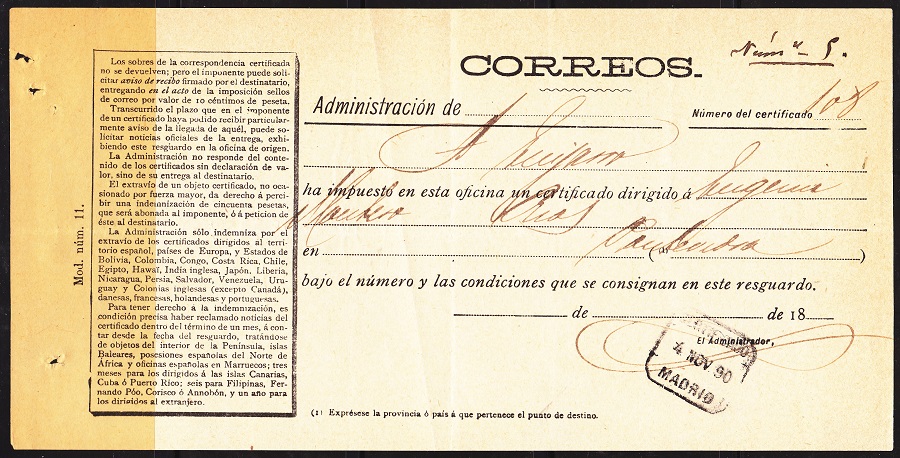 Mod. núm. 11.
Los sobres de la correspondencia certificada
no se devuelven; pero el imponente puede soli-
citar aviso de recibo firmado por el destinatario,
entregando en el acto de la imposición sellos
de correo por valor de 10 céntimos de peseta.
Transcurrido el plazo que en el imponente
de un certificado haya podido recibir particular-
mente aviso de la llegada de aquél, puede so-
licitar noticias oficiales de la entrega, exhi-
biendo este resguardo en la oficina de origen.
La Administración no responde del conte-
nido de los certificados sin declaración de va-
lor, sino de su entrega al destinatario.
El extravío de un objeto certificado, no oca-
sionado por fuerza mayor, da derecho á per-
cibir una indemnización de cincuenta pesetas,
que será abonada al imponente, ó á petición de
éste al destinatario.
La Administración sólo indemniza por el
extravío de los certificados dirigidos al terri-
torio español, países de Europa, y Estados de
Bolivia, Colombia, Congo, Costa Rica, Chile,
Egipto, Hawaï, India inglesa, Japón, Liberia,
Nicaragua, Persia, Salvador, Venezuela, Uru-
guay y Colonias inglesas (excepto Canadá),
danesas, francesas, holandesas y portuguesas.
Para tener derecho á la indemnización, es
condición precisa haber reclamado noticias del
certificado dentro del término de un mes, á con-
tar desde la fecha del resguardo, tratándose
de objetos del interior de la Península, islas
Baleares, posesiones españolas del Norte de
África y oficinas españolas en Marruecos; tres
meses para los dirigidos á las islas Canarias,
Cuba ó Puerto Rico; seis para Filipinas, Fer-
nando Póo, Corisco ó Annobón, y un año para
los dirigidos al extranjero.
Núm 5.
CORREOS.
Administración de
Número del certificado 108
A
ha impuesto en esta oficina un certificado dirigido á Eugenia
en (1) )
bajo el número y las condiciones que se consignan en este resguardo.
de de 18
El Administrador,
CERTIFICADO
4 NOV 90
MADRID
(1) Exprésese la provincia ó país á que pertenece el punto de destino.